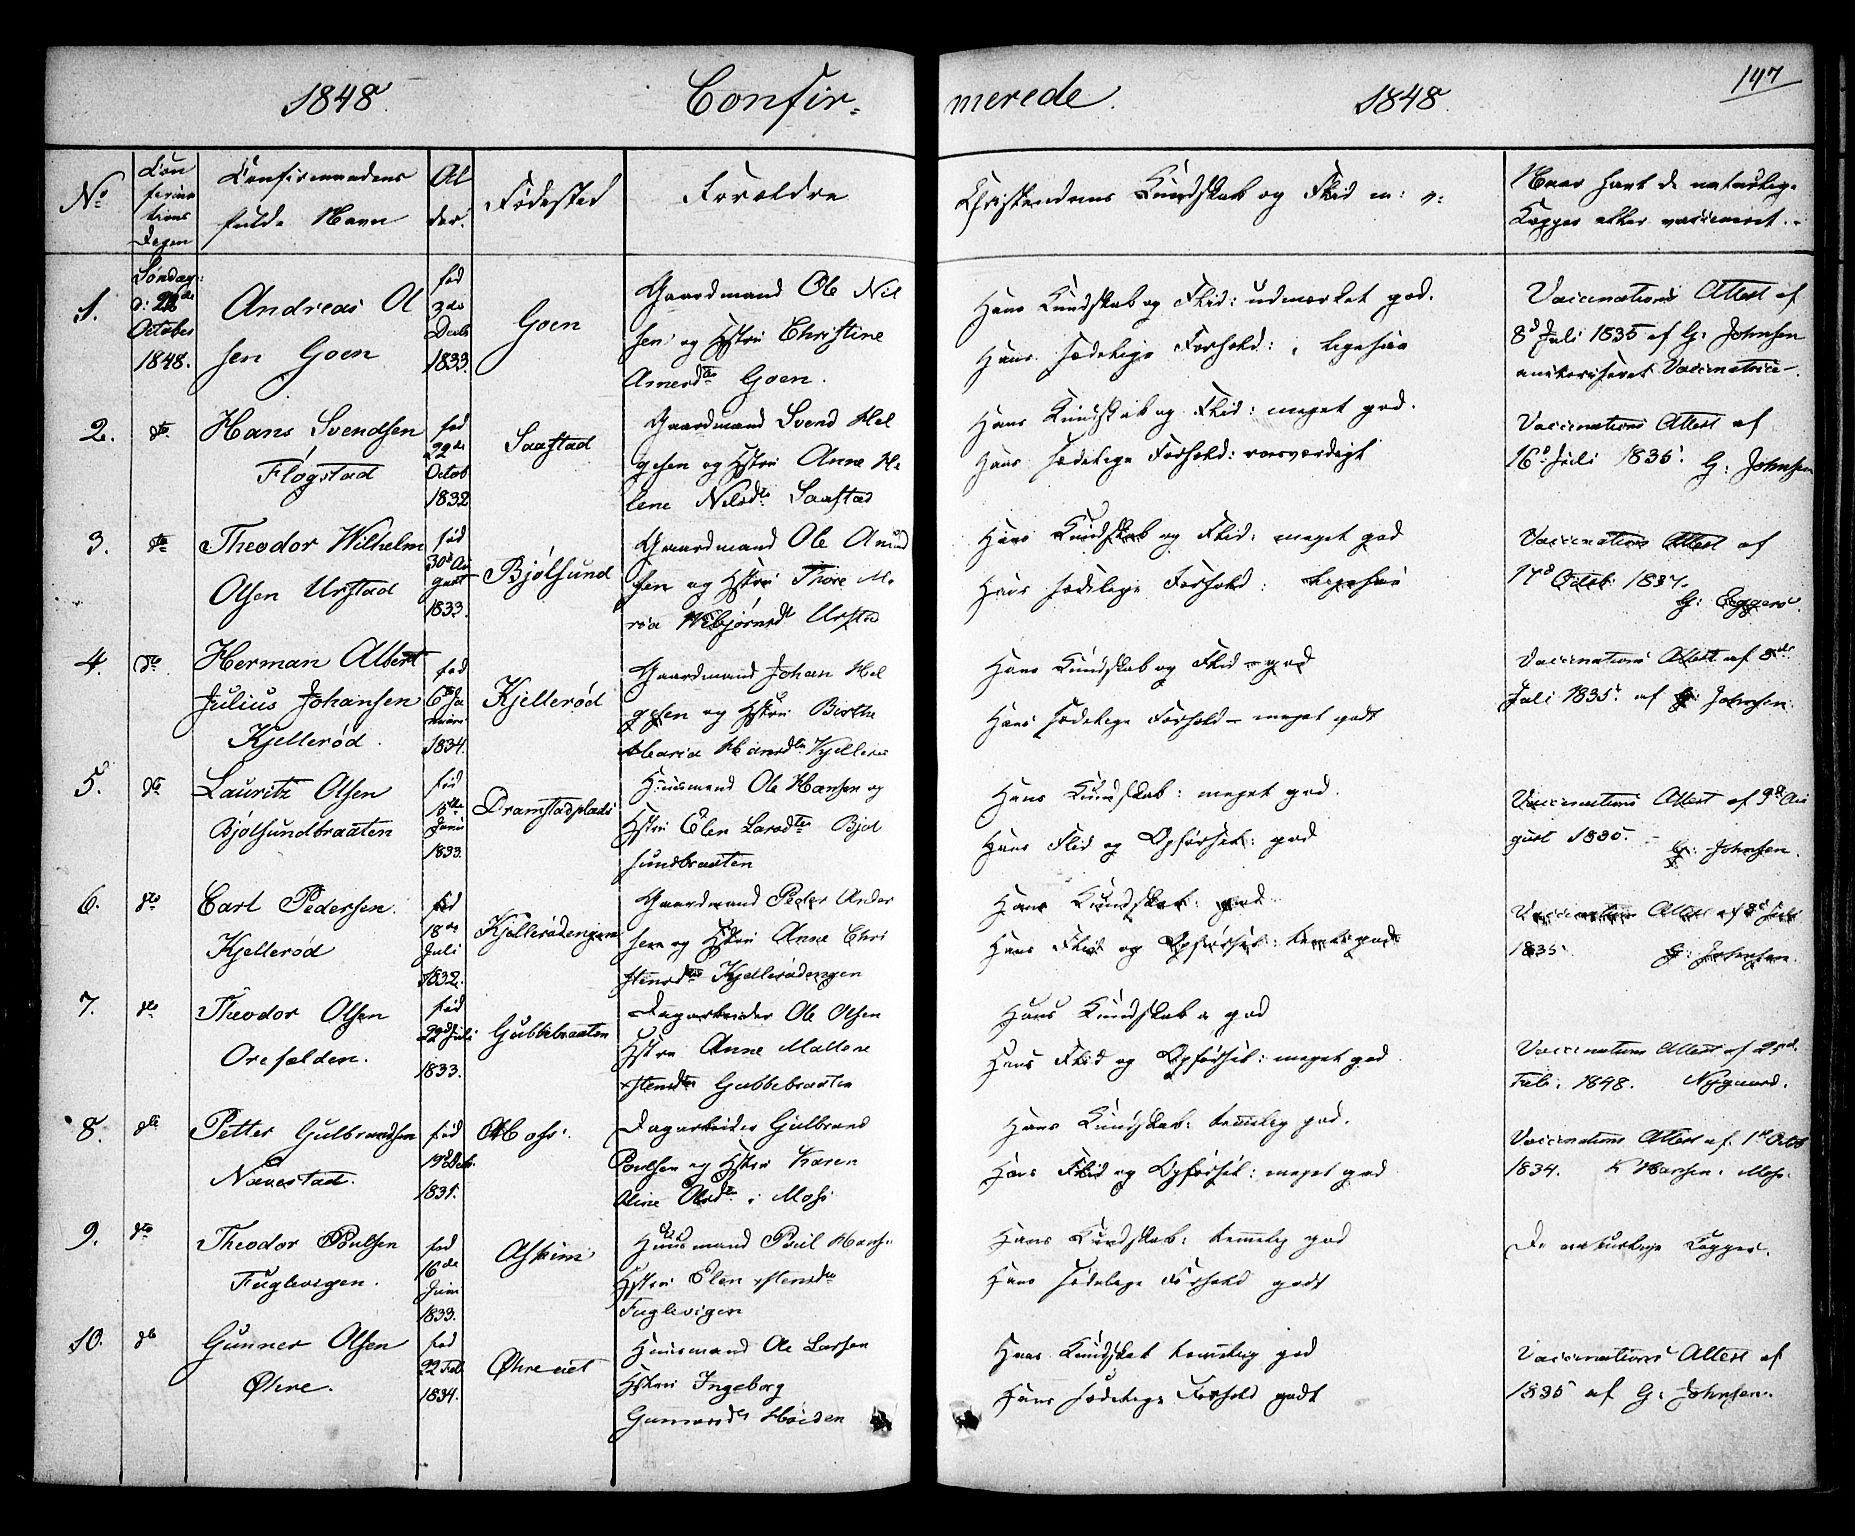 1848. Confir-
merede. 1848. 147
No
Con
firma
tions
Dagen
Confirmandens
fulde Navn
Al
der.
Fødested
Forældre
Christendoms Kundskab og Flid m: v:
Naar havt de naturlige
Kopper eller vaccineret.
1.
Søndag
d: 22de
October
1848.
Andreas Ol
sen Goen
fød
3die
Decb
1833.
Goen
Gaardmand Ole Nil
sen og Hstru Christine
Arnesd. Goen.
Hans Kundskab og Flid: udmærket god.
Hans sædelige Forhold: ligesaa
Vaccinations Attest af
8d Juli 1835 af G: Johnsen
autoriseret Vaccinatrice.
2.
do
Hans Svendsen
Flogstad
fød
22de
Octob
1832
Saastad
Gaardmand Svend Hel
gesen og Hstru Anne He
lene Nilsd. Saastad
Hans Kundskab og Flid: meget god.
Hans sædelige Forhold: roesværdigt
Vaccinations Attest af
16d Juli 1835. G: Johnsen
3.
do
Theodor Wilhelm
Olsen Urstad
fød
30d Au
gust
1833.
Bjølsund
Gaardmand Ole Amund
sen og Hstru Thore Ma
ria Urstad
Hans Kundskab og Flid: meget god
Hans sædelige Forhold: ligesaa
Vaccinations Attest af
17d Octob: 1837.
G: Eggers.
4.
do
Herman Albert
Julius Johansen
Kjellerød.
fød
6te Ja
nuar
1834.
Kjellerød
Gaardmand Johan Hel
gesen og Hstru Berthe
Maria Hansd. Kjellerød
Hans Kundskab og Flid - god
Hans sædelige Forhold - meget godt
Vaccinations Attest af 8de
Juli 1835. af G: Johnsen.
5.
do
Lauritz Olsen
Bjølsundbraaten
fød
Juni
1833.
Dramstadplads
Huusmand Ole Hansen og
Hstru Elen Larsd. Bjøl
sundbraaten
Hans Kundskab: meget god.
Hans Flid og Opførsel: god
Vaccinations Attest af 9d Au
gust 1835.
G: Johnsen.
6.
do
Carl Pedersen.
Kjellerød
fød
18de
Juli
1832.
Kjellerødengen
Gaardmand Peder Ander
sen og Hstru Anne Chri
stensd. Kjellerødengen
Hans Kundskab: god.
Hans Flid og Opførsel: temmelig god
Vaccinations Attest af 8d Juli
1835. G: Johnsen.
7.
do
Theodor Olsen
Orefalden.
fød
22d Juli
1833.
Gubbebraaten
Dagarbeider Ole Olsen
Hstru Anne Mallene
Gubbebraaten
Hans Kundskab: god
Hans Flid og Opførsel: meget god
Vaccinations Attest af 25d.
Feb. 1848. Nygaard.
8.
do
Petter Gulbrandsen
Navestad.
fød
19d Dec.
1831.
Moss.
Dagarbeider Gulbrand
Poulsen og Hstru Karen
Oline Olsd. i Moss
Hans Kundskab: temmelig god.
Hans Flid og Opførsel: meget god
Vaccinations Attest af 1st Octob
1834. K Hansen. Moss.
9.
do
Theodor Poulsen
Fuglevigen.
fød
16de
Juni
1833.
Askim
Huusmand Poul Hans.
Hstru Elen
Fuglevigen
Hans Kundskab: temmelig god
Hans sædelige Forhold godt
De naturlige Kopper.
10.
do
Gunner Olsen
Øhre.
fød
22 Feb.
1834.
Øhre eiet
Huusmand Ole Larsen
Hstru Ingeborg
Gunnersd. Høiden
Hans Kundskab temmelig god
Hans sædelige Forhold godt
Vaccinations Attest af
1835 af G: Johnsen.